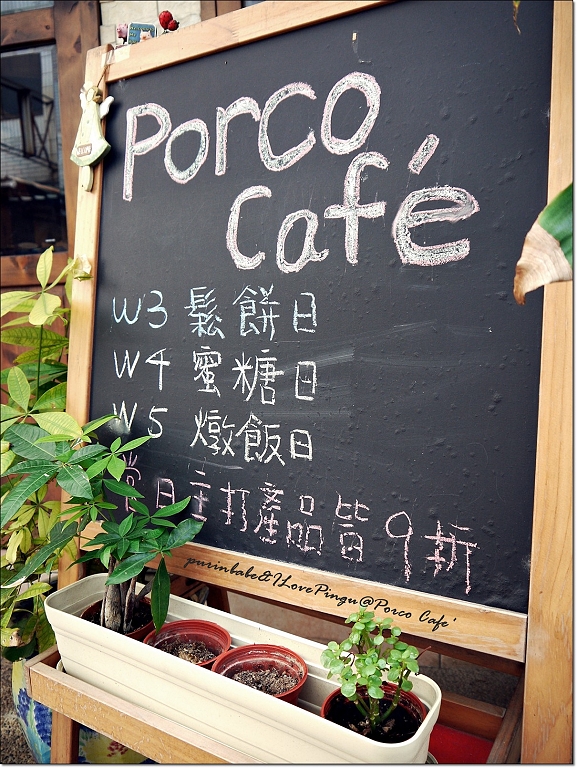 Porco
Café
W3 鬆餅日
W4 蜜糖日
W5 燉飯日
當日主打產品皆9折
purinbabe&ILovePingu@Porco Cafe'